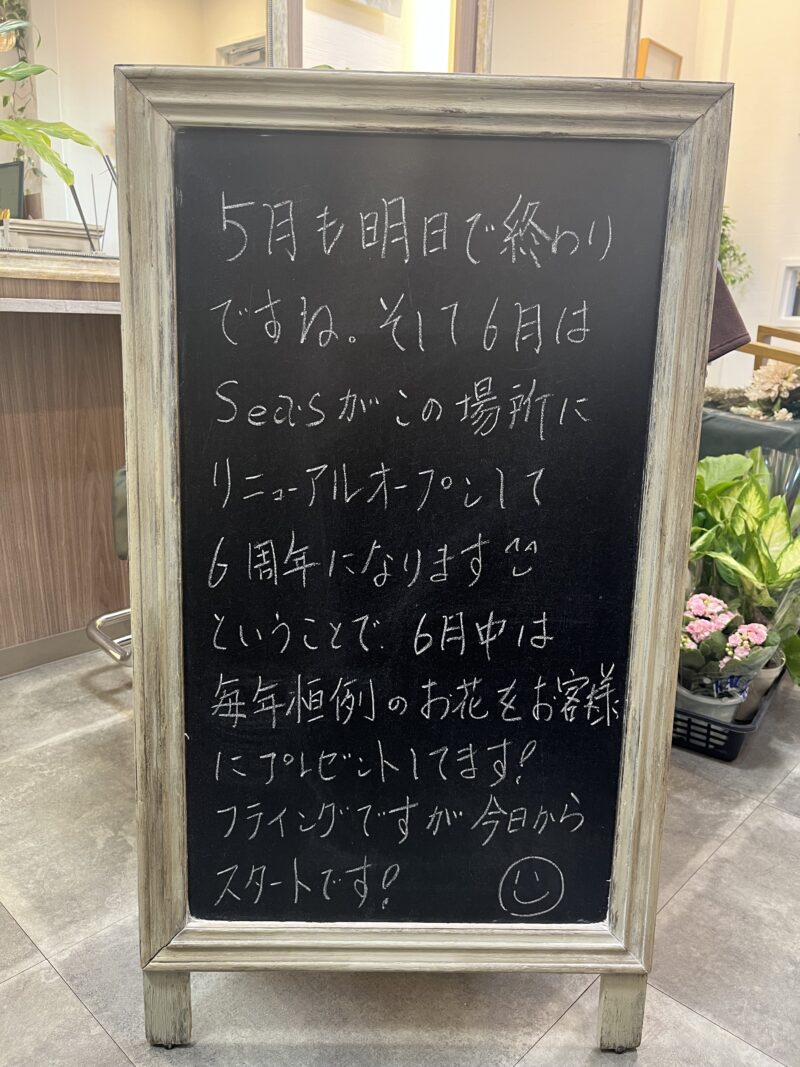 5月も明日で終わり
ですね。そして6月は
Seasがこの場所に
リニューアルオープンして
6周年になります^^
ということで、6月中は
毎年恒例のお花をお客様
にプレゼントしてます!
フライングですが今日から
スタートです!